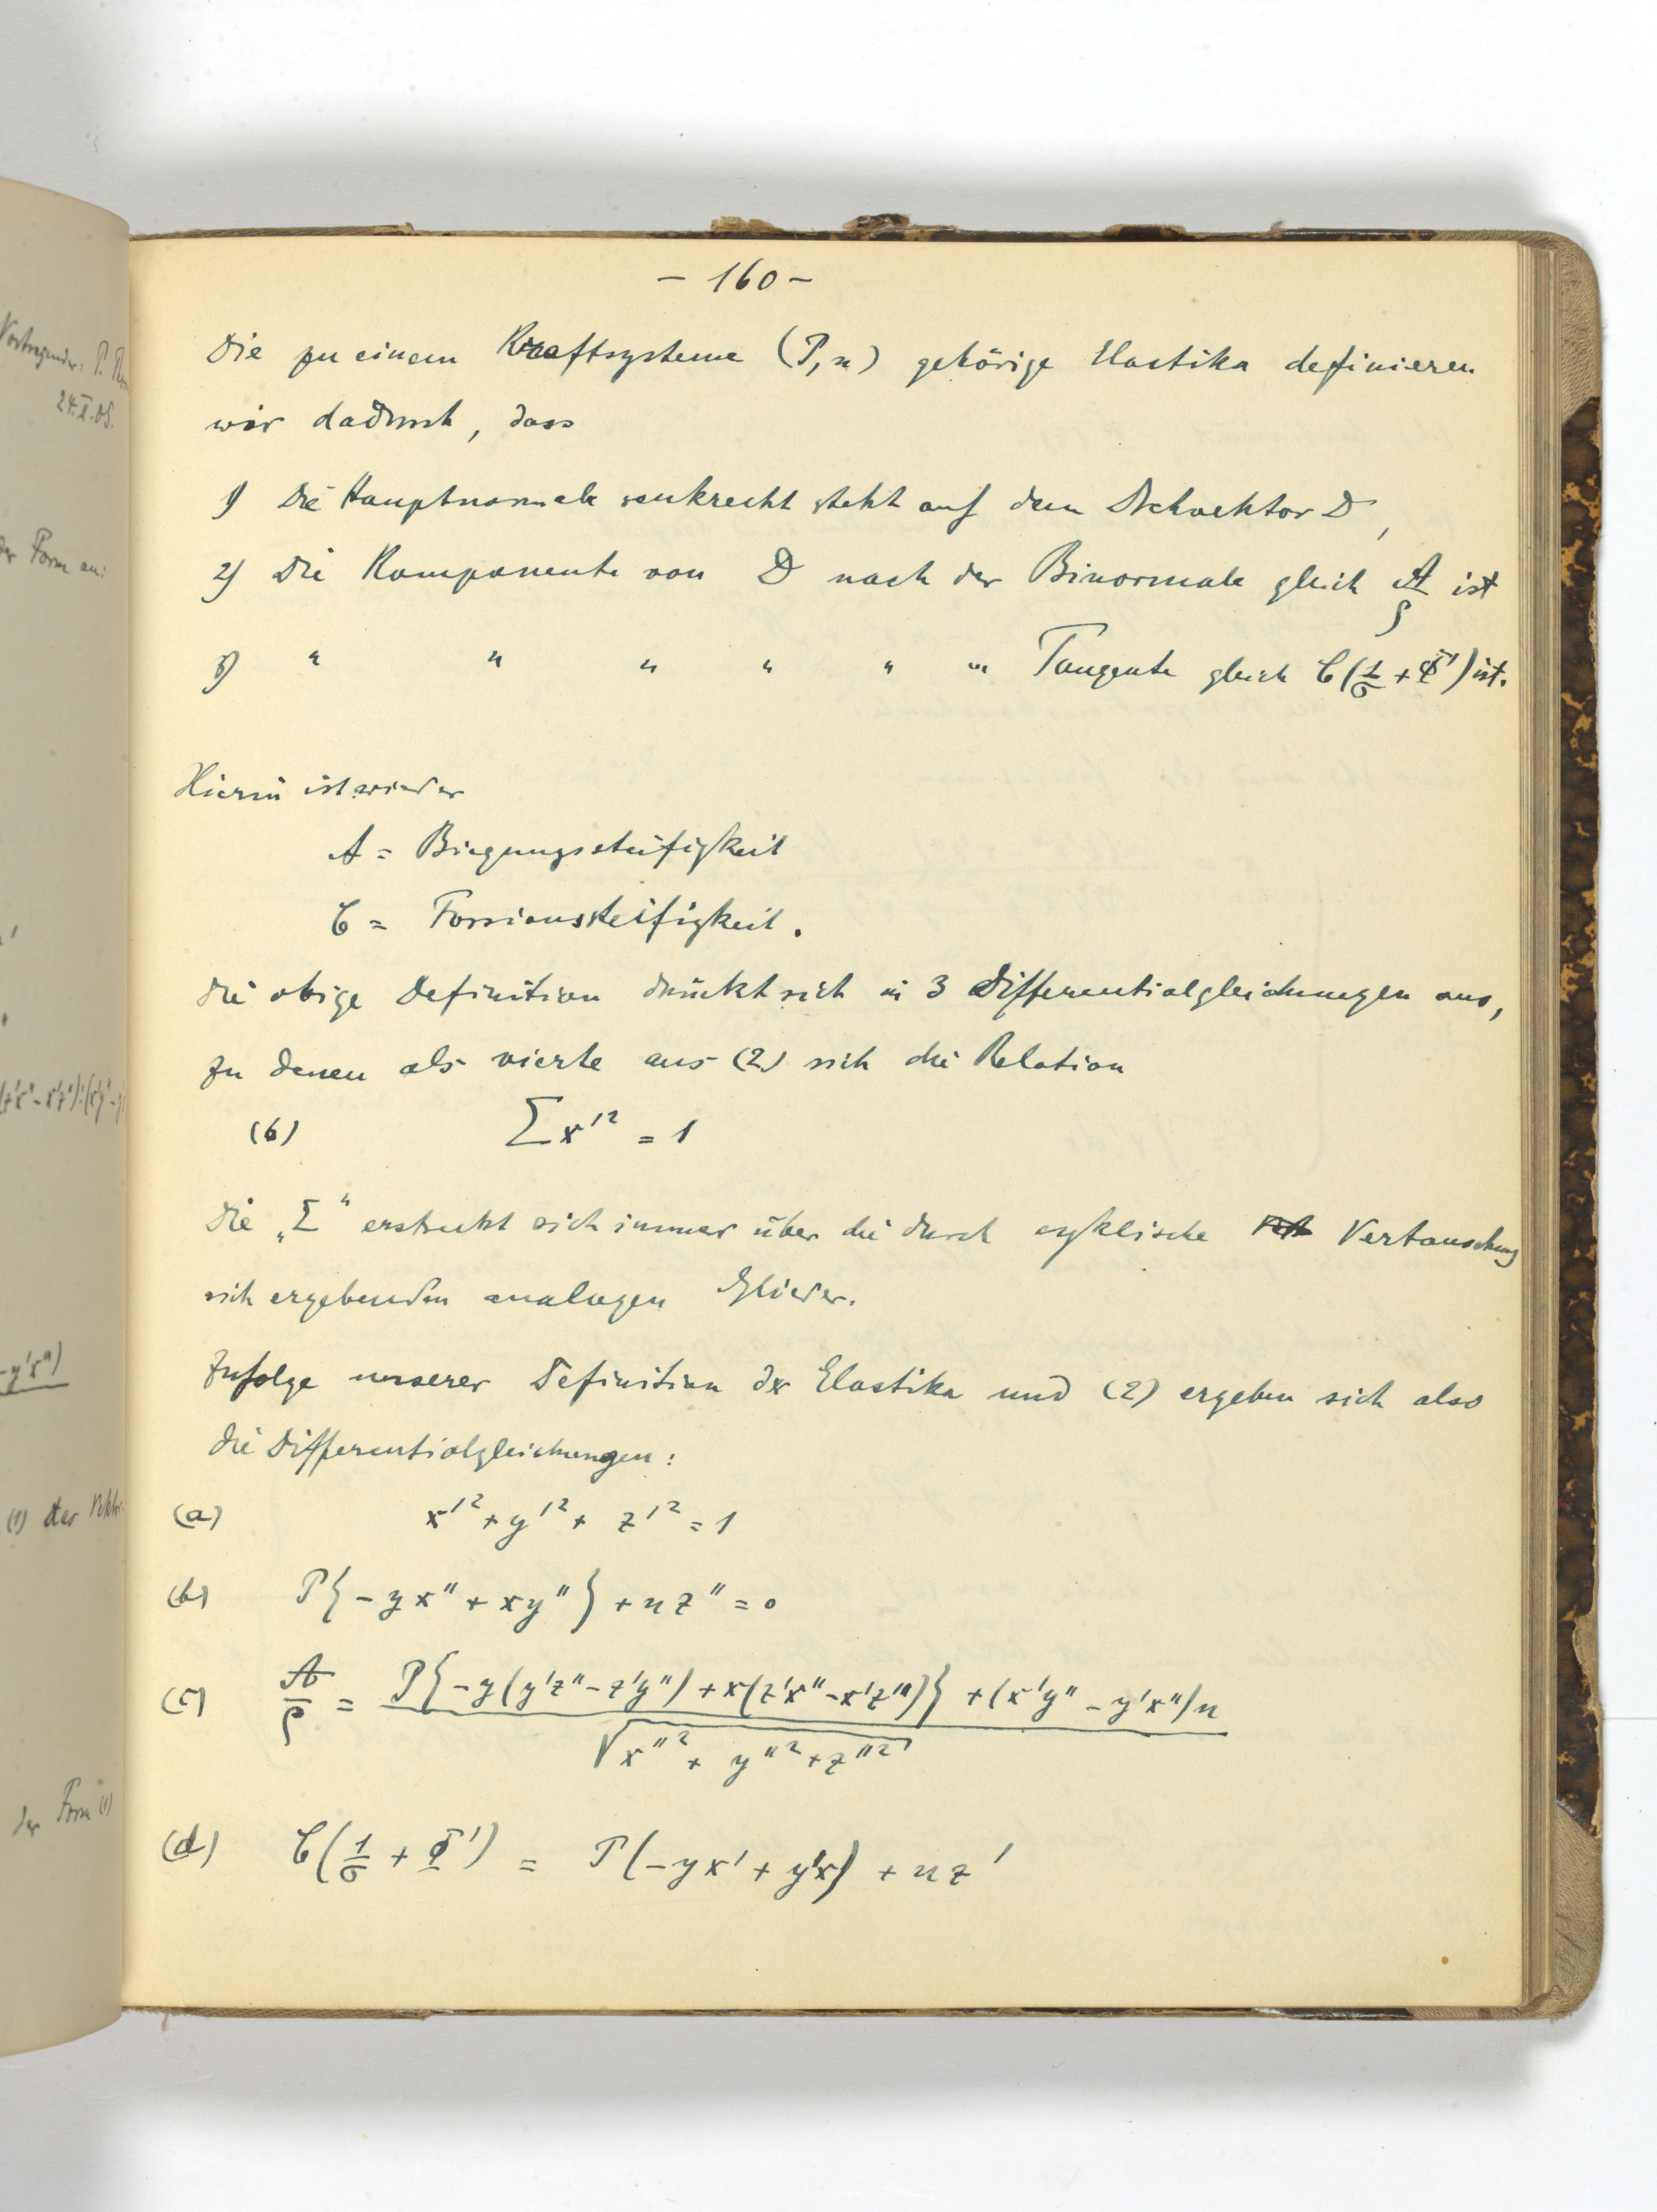 Vortragender: P.
24.X.05.
der Form an:
(z'x''-x'z''):(x'y''-y'
-y'x'')
(1) der Vektor
der Form (1)
- 160 -
Die zu einem Kraftsysteme (P, n) gehörige Elastika definieren
wir dadurch, dass
1) Die Hauptnormale senkrecht steht auf dem Drehvektor D,
2) Die Komponente von D nach der Binormale gleich A/ρ ist
3) " " " " " " Tangente gleich C(1/σ + Φ') ist.
Hierin ist wieder
A = Biegungssteifigkeit
C = Torsionssteifigkeit.
Die obige Definition drückt sich in 3 Differentialgleichungen aus,
zu denen als vierte aus (2) sich die Relation
(6) Σx'² = 1
Die „Σ“ erstreckt sich immer über die durch cyklische Vertauschung
sich ergebenden analogen Glieder.
Zufolge unserer Definition der Elastika und (2) ergeben sich also
die Differentialgleichungen:
(a) x'² + y'² + z'² = 1
(b) P{-yx'' + xy''} + nz'' = 0
(c) A/ρ = P{-y(y'z''-z'y'') + x(z'x''-x'z'')} + (x'y'' - y'x'')n / √x''² + y''² + z''²
(d) C(1/σ + Φ') = P(-yx' + y'x) + nz'